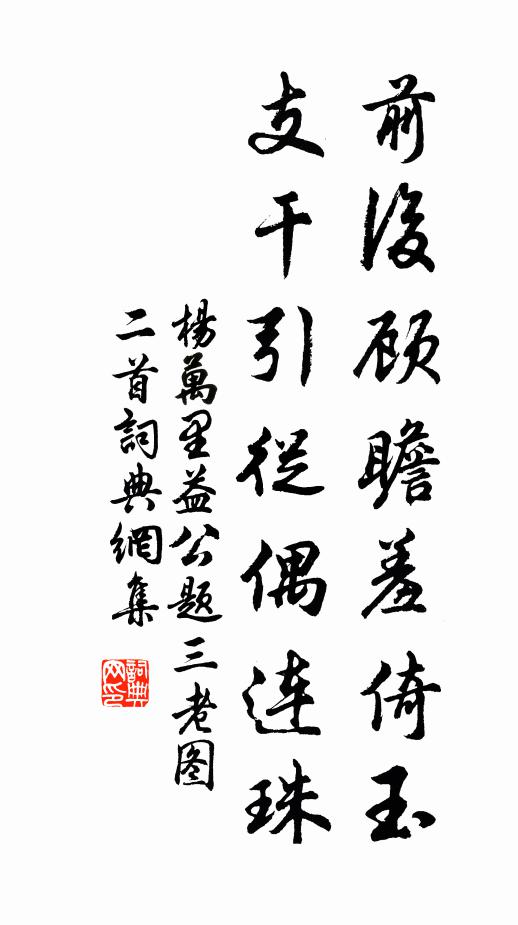 前後顾瞻羞倚玉
支干引從偶連珠
楊萬里益公题三老图
二首詞典網集
詞典
网印